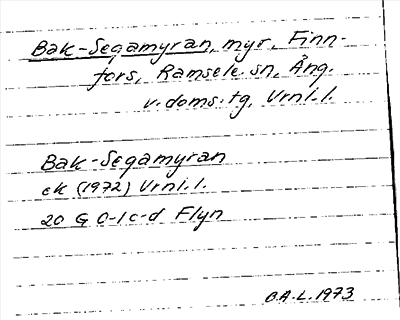 Bak-Segamyran, myr, Finn-
fors, Ramsele sn, Ång.
v. doms. tg, Vrnl.l.
Bak-Segamyran
ek (1972) Vrnl.l.
20 G 0-1 c-d Flyn
B.A-L. 1973